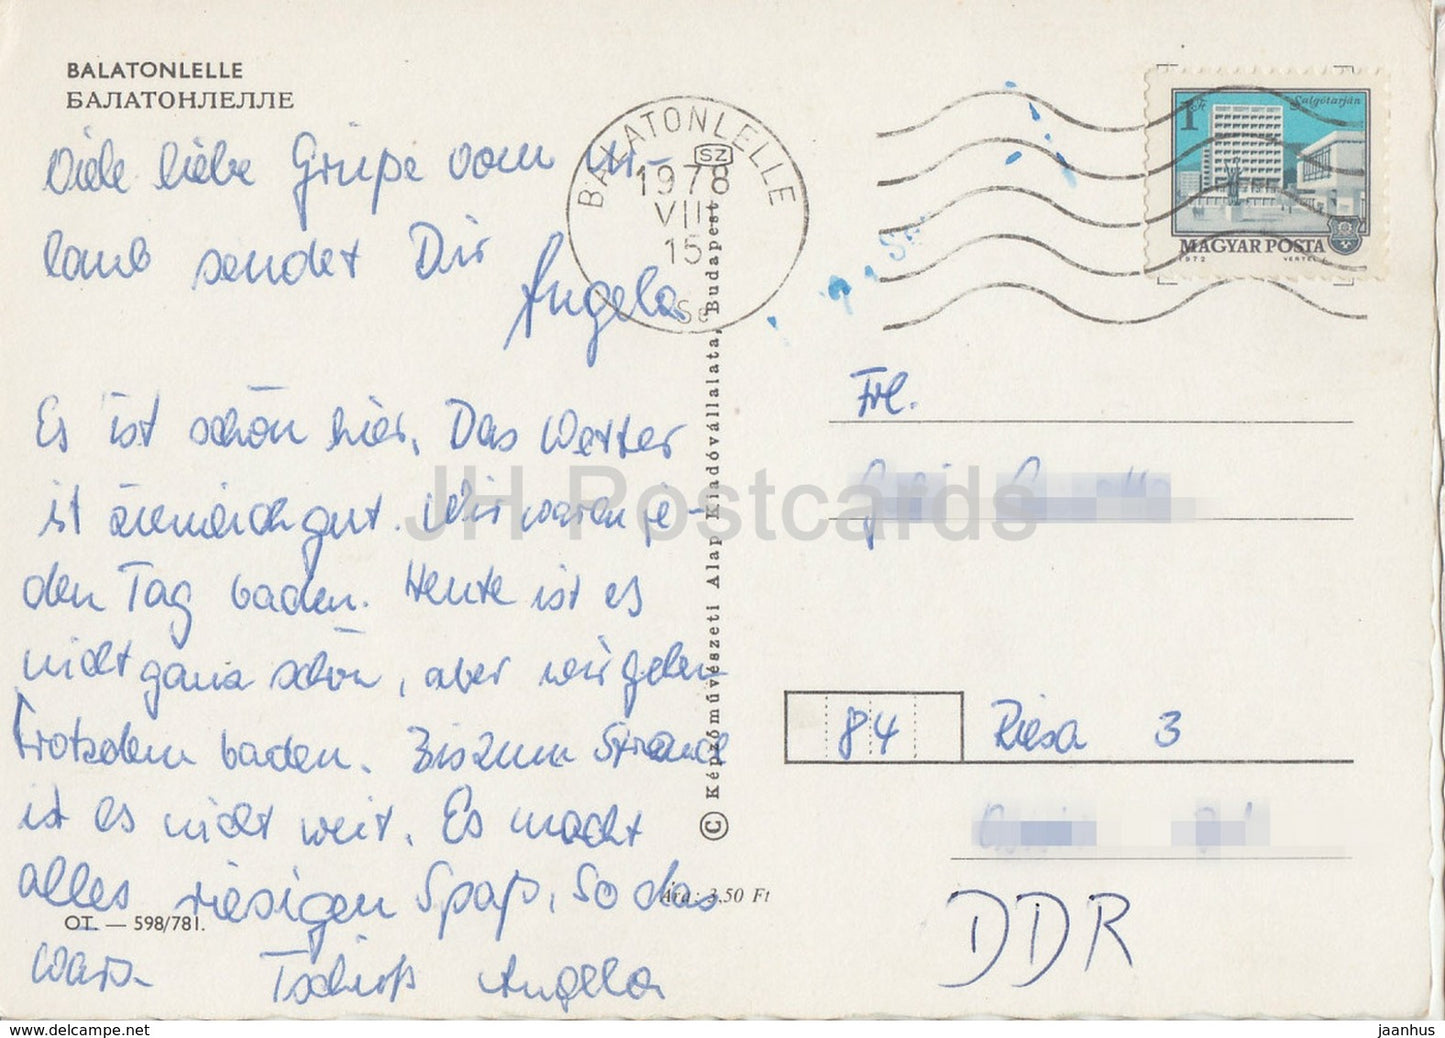 BALATONLELLE
БАЛАТОНЛЕЛЛЕ
Viele liebe Grüpe vom Ur-
laub sendet Dir
Angela
Es ist schön hier. Das Wetter
ist ziemlich gut. Wir waren je-
den Tag baden. Heute ist es
nicht ganz schön, aber wir gehen
trotzdem baden. Bis zum Strand
ist es nicht weit. Es macht
alles riesigen Spaß. So das
wärs. Tschüß Angela
OT. — 598/781.
Ára: 3,50 Ft
© Képzőművészeti Alap Kiadóvállalata, Budapest
BALATONLELLE
SZ
1978
VIII
15
Se
1 Ft
Salgótarján
MAGYAR POSTA
1972
Frl.
84 Riesa 3
DDR
JH Postcards
www.hippostcard.com
jaanhus